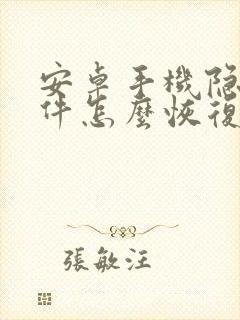 安卓手機隐
件怎麼恢復
張敏汪